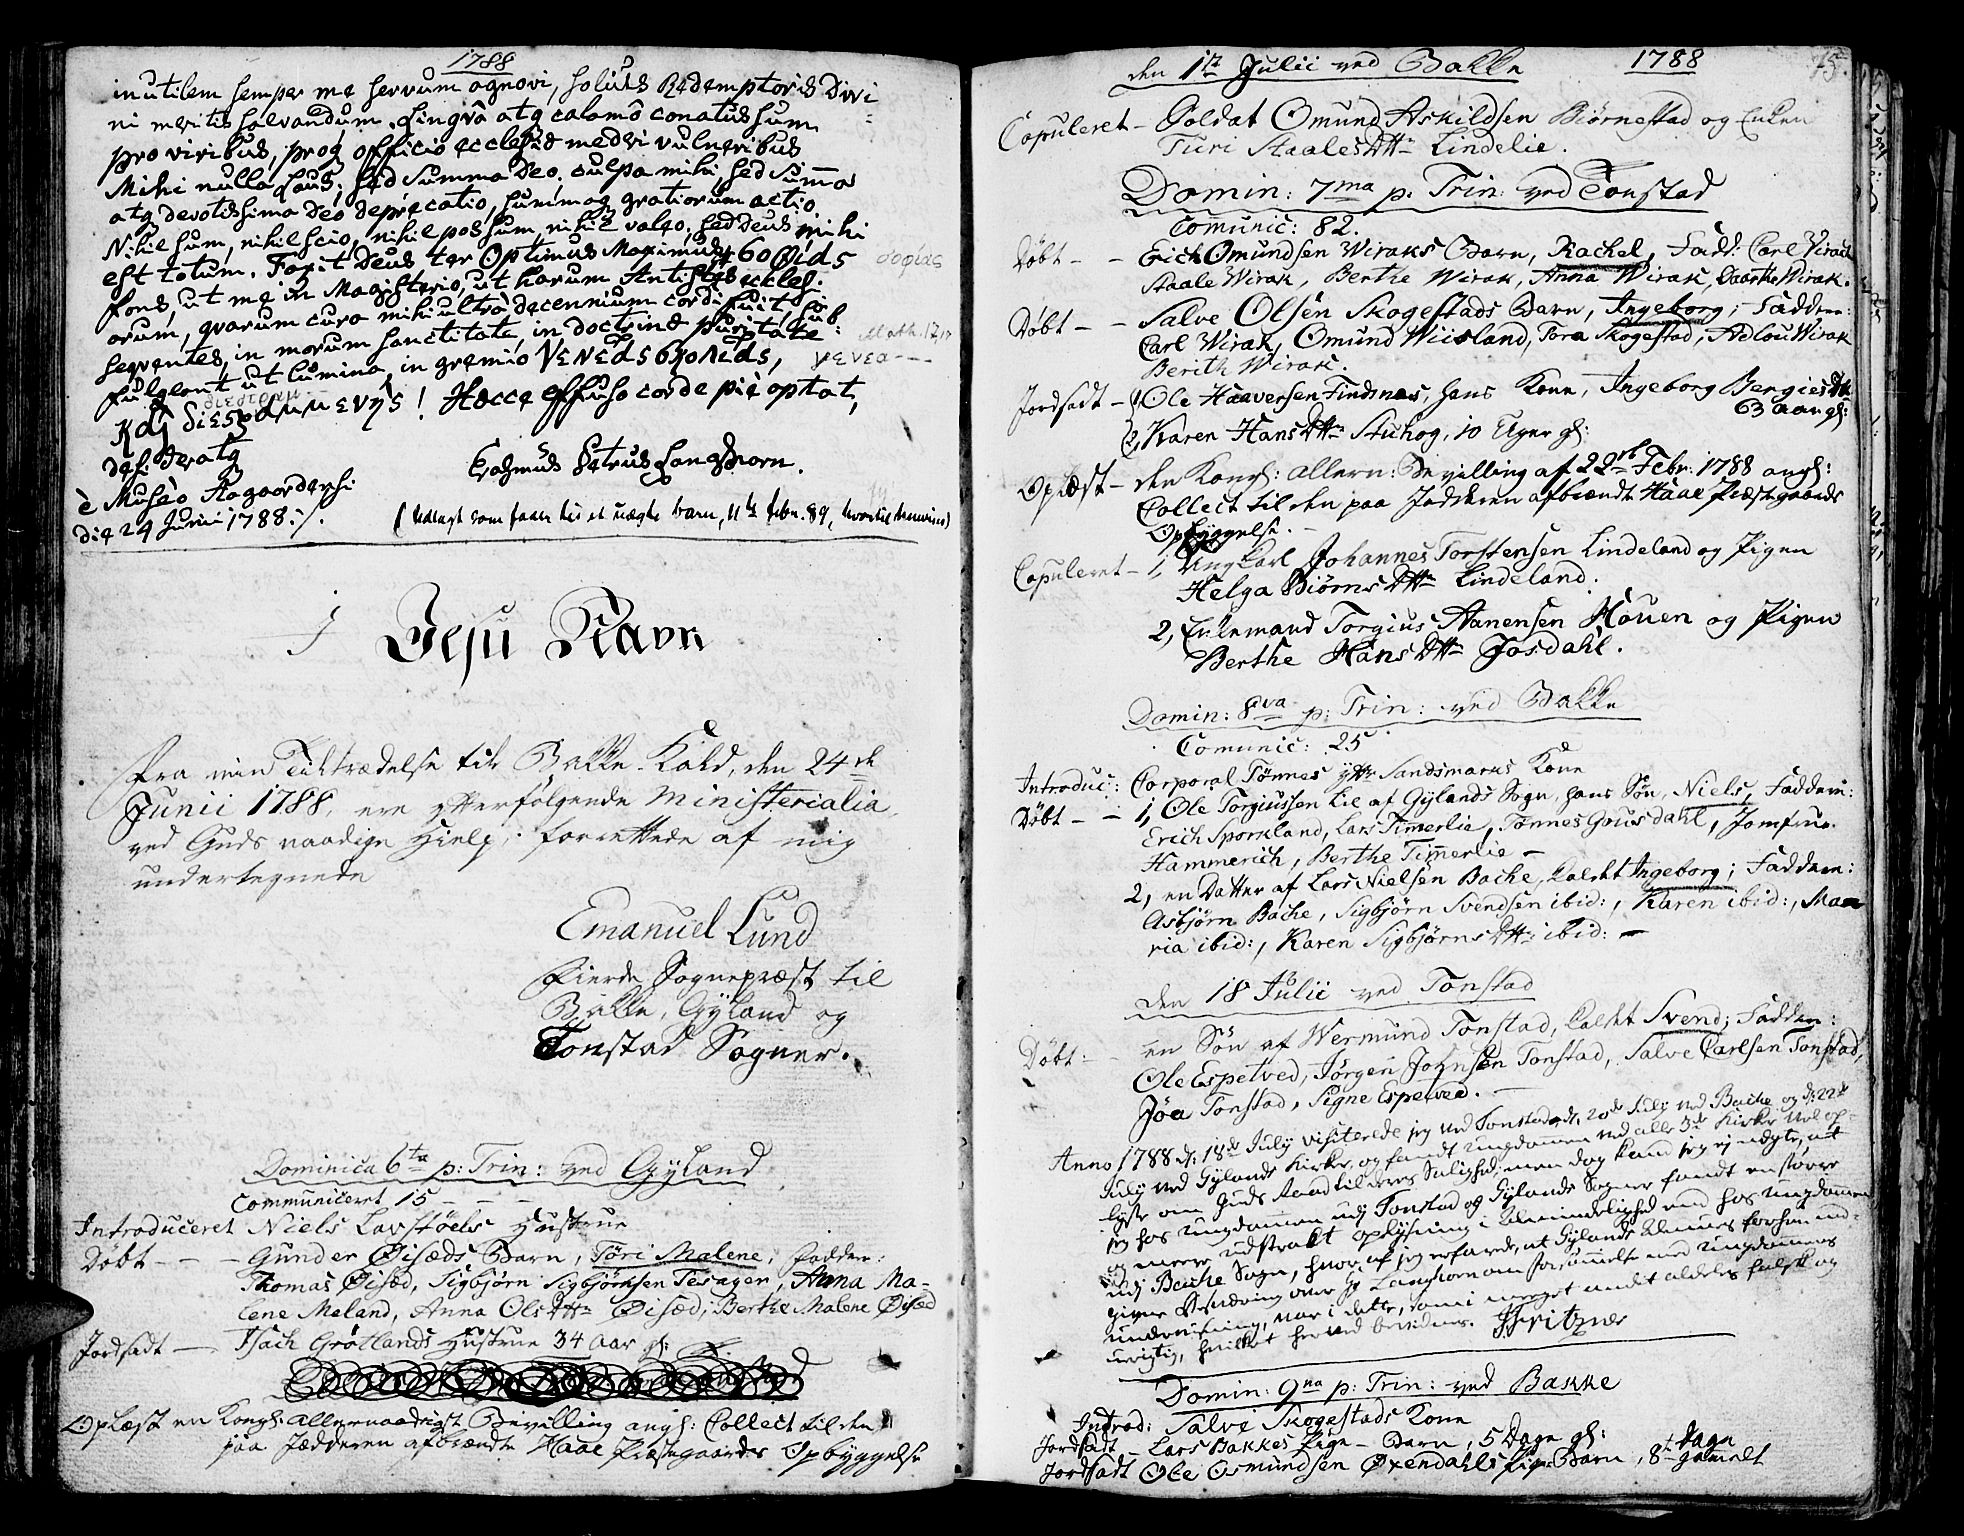 1788
inutilem semper me servum agnovi, solius Redemptoris Divi
ni meritis salvandum. Lingvâ atq calamô conatus sum
pro viribus, proq officio ecclesiæ mederi vulneribus
Mihi nulla laus; sed summa Deo. culpa mihi, sed summa
atq devotissima Deo deprecatio, summaq gratiorum actio
Nihil sum, nihil scio, nihil possum, nihil valeo, sed Deus mihi
est totum. Faxit Deus ter Optimus Maximus
fons, ut me in Magisterio, ut harum Antistes eccles:
orum, qvarum cura mihi ultra decennium cordi fuit, sub:
seqventes, in morum sanctitate, in doctrinæ puritate
fulgeant ut lumina, in gremio γενεᾶς
Hocce effuso corde piè optat,
desideratq
Erasmus Petrus Langhorn.
è Musæo Aagaardensi
die 24 Junii 1788 ./.
( Udlagt som fader til et uægte barn, 11te febr. 89, hvortil henvises)
I Jesu Navn
Fra min Tiltrædelse til Bakke-Kald, den 24de
Junii 1788, ere efterfølgende Ministerialia,
ved Guds naadige Hielp, forrettede af mig
undertegnede
Emanuel Lund
Fierde Sognepræst til
Bakke, Gyland og
Tonstad Sogner.
Dominica 6ta p: Trin: ved Gyland
Communiceret 15
Introduceret Niels Lavstøels Hustrue
Døbt - - - Gunder Øisæds Barn, Tøri Malene; Fadder:
Thomas Øisæd, Sigbjørn Sigbjørnsen Tesagen, Anna Ma-
lene Meland, Anna Olsdttr Øisæd, Berthe Malene Øisæd
Jordfæst — Isach Grøtlands Hustrue 34 Aar gl:
Oplæst en Kongl: allernaadigst Bevilling angl: Collect til den
paa Jædderen afbrændte Haae Præstegaards Opbyggelse
den 1te Julii ved Bakke 1788 75.
Copuleret — Soldat Omund Askildsen Biørnestad og Enken
Turi Staalesdttr Lindelie.
Domin: 7ma p: Trin: ved Tonstad
Comunic: 82.
Døbt - - Erich Omundsen Wiraks Barn, Rachel, Fadd: Carl Wirak
Staale Wirak, Berthe Wirak, Anna Wirak, Daarthe Wirak.
Døbt - - Salve Olsen Skogestads Barn, Ingeborg; Faddere:
Carl Wirak, Omund Wiisland, Tora Skogestad, Adlou Wirak
Berith Wirak.
Jordfæst — 1, Ole Haaversen Findsnæs, hans Kone, Ingeborg Bergiesdttr
63 aar gl:
2, Karen Hansdttr Stuhog, 10 Uger gl:
Oplæst — den Kongl: allern: Bevilling af 22de Febr: 1788 angl:
Collect til den paa Jædderen afbrændt Haae Præstgaards
Opbyggelse. —
Copuleret — 1, Ungkarl Johannes Torstensen Lindeland og Pigen
Helga Biørnsdttr Lindeland.
2, Enkemand Torgius Aanensen Houen og Pigen
Berthe Hansdttr Josdahl.
Domin: 8va p: Trin: ved Bakke
Comunic: 25
Introduc: Corporal Tønnes yttr Sandsmarks Kone
Døbt - - 1, Ole Torgiussen Lie af Gylands Sogn, hans Søn, Niels, Faddere:
Erich Sporkland, Lars Timerlie, Tønnes Gousdahl, Jomfrue.
Hammerich, Berthe Timerlie —
2, en Datter af Lars Nielsen Bache, kaldet Ingeborg; Faddere:
Asbjørn Bache, Sigbjørn Svendsen ibid:, Karen ibid:, Ma
ria ibid:, Karen Sigbjørnsdttr ibid: —
den 18 Julii ved Tonstad
Døbt: - en Søn af Wermund Tonstad, kaldet Svend; Fadder:
Ole Espetved, Jørgen Johnsen Tonstad, Salve Carlsen Tonstad,
Jøa Tonstad, Signe Espetved. —
Anno 1788 d: 18de July visiterede jeg ved Tonstad, d. 20de July ved Bache og d: 22de
July ved Gylands Kirke, og fandt ungdommen ved alle 3de Kirker vel op-
lyste om Guds Raad til deres Salighed; men dog kand jeg ej nægte, at
jeg hos ungdommen udj Tonstad og Gylands Sogner fandt en større
og meere udstrakt oplysning i Almindelighed end hos ungdommen
udj Bache Sogn, hvor af jeg erfarede, at Gylands Almues forhen ind-
givne Besværing over Hr Langhorn om forsømmelse med ungdommens
underviisning, var i dette, som i meeget andet aldeles falsk og
urigtig, hvilket herved bevidnes. Spritzner
Domin: 9na p: Trin: ved Bakke
Introd: Salve Skogestads Kone
Jordfæst — Lars Bakkes Pige-Barn, 5 Dage gl:
Jordfæst Ole Osmundsen Øxendahls Pige-Barn, 8te Dage
gamelt